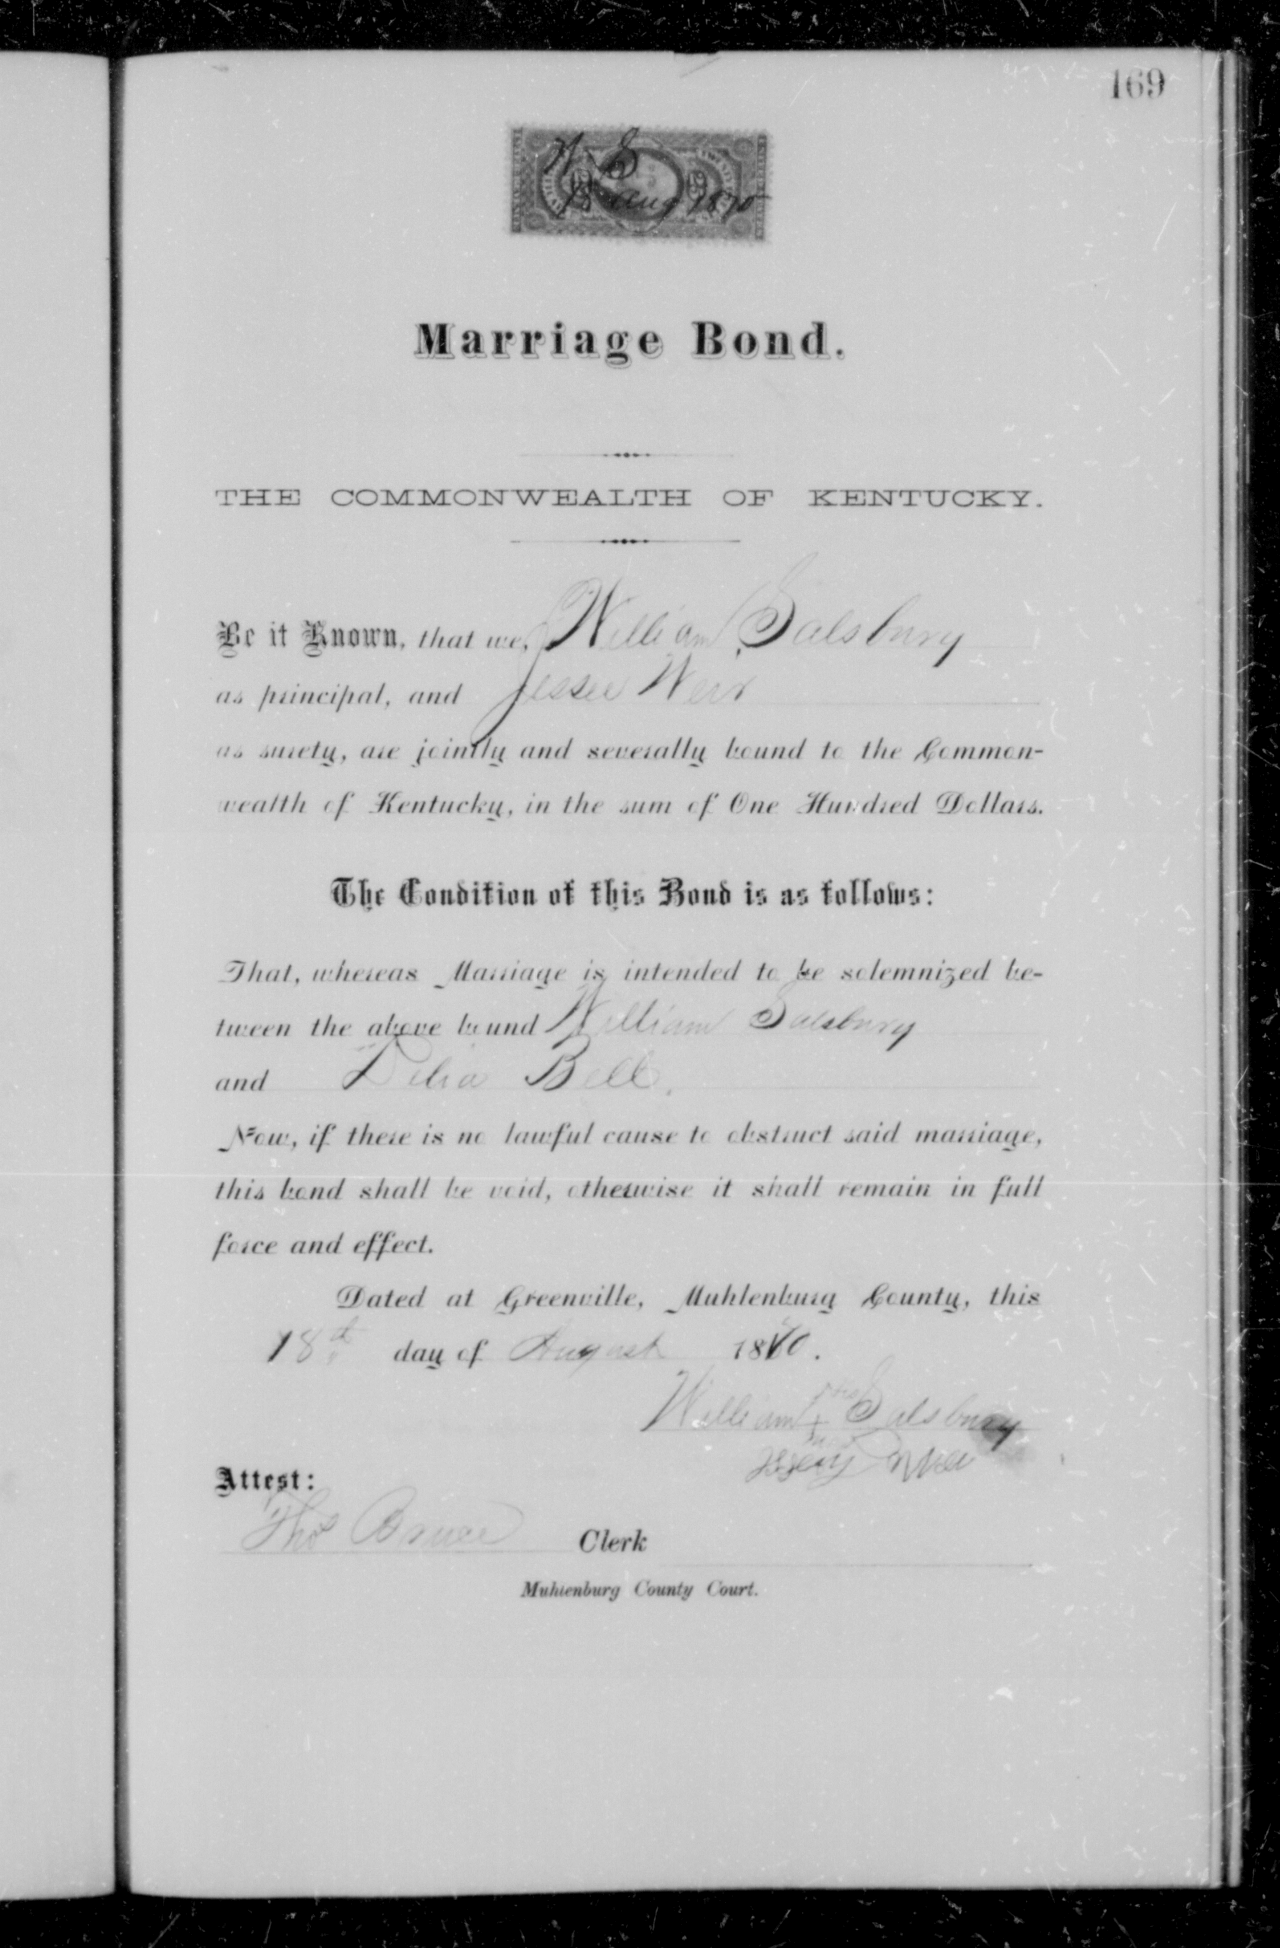 169
W. S
18 Aug 1870
Marriage Bond.
THE COMMONWEALTH OF KENTUCKY.
Be it Known, that we, William Salsbury
as principal, and Jessee Weir
as surety, are jointly and severally bound to the Common-
wealth of Kentucky, in the sum of One Hundred Dollars.
The Condition of this Bond is as follows:
That, whereas Marriage is intended to be solemnized be-
tween the above bound William Salsbury
and Delia Bell.
Now, if there is no lawful cause to obstruct said marriage,
this bond shall be void, otherwise it shall remain in full
force and effect.
Dated at Greenville, Muhlenburg County, this
18th day of August 1870.
William his + Salsbury
Attest:
Thos Bruce Clerk
Muhlenburg County Court.